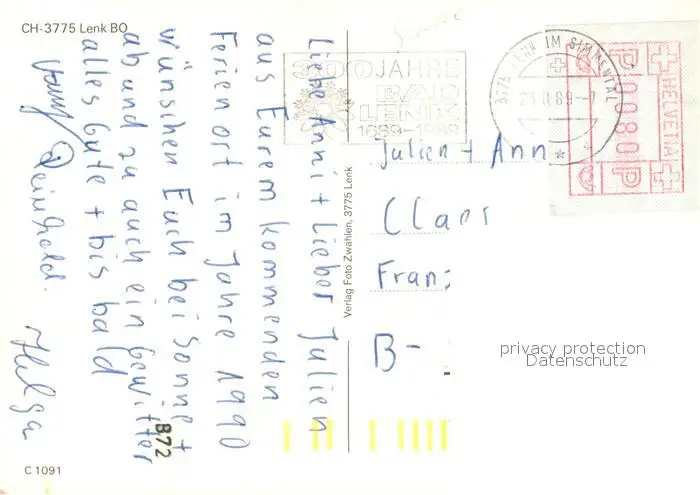 CH-3775 Lenk BO
Liebe Anni + Lieber Julien
aus Eurem kommenden
Ferienort im Jahre 1990
wünschen Euch bei Sonne +
ab und zu auch ein Gewitter
alles Gute + bis bald
Reinhold.
Helga
C 1091
872
Verlag Foto Zwahlen, 3775 Lenk
300 JAHRE
BAD
LENK
1689-1989
3775 LENK IM SIMMENTAL
HELVETIA
0080
P
P
Julien + Ann
Claes
Fran
B-
privacy protection
Datenschutz